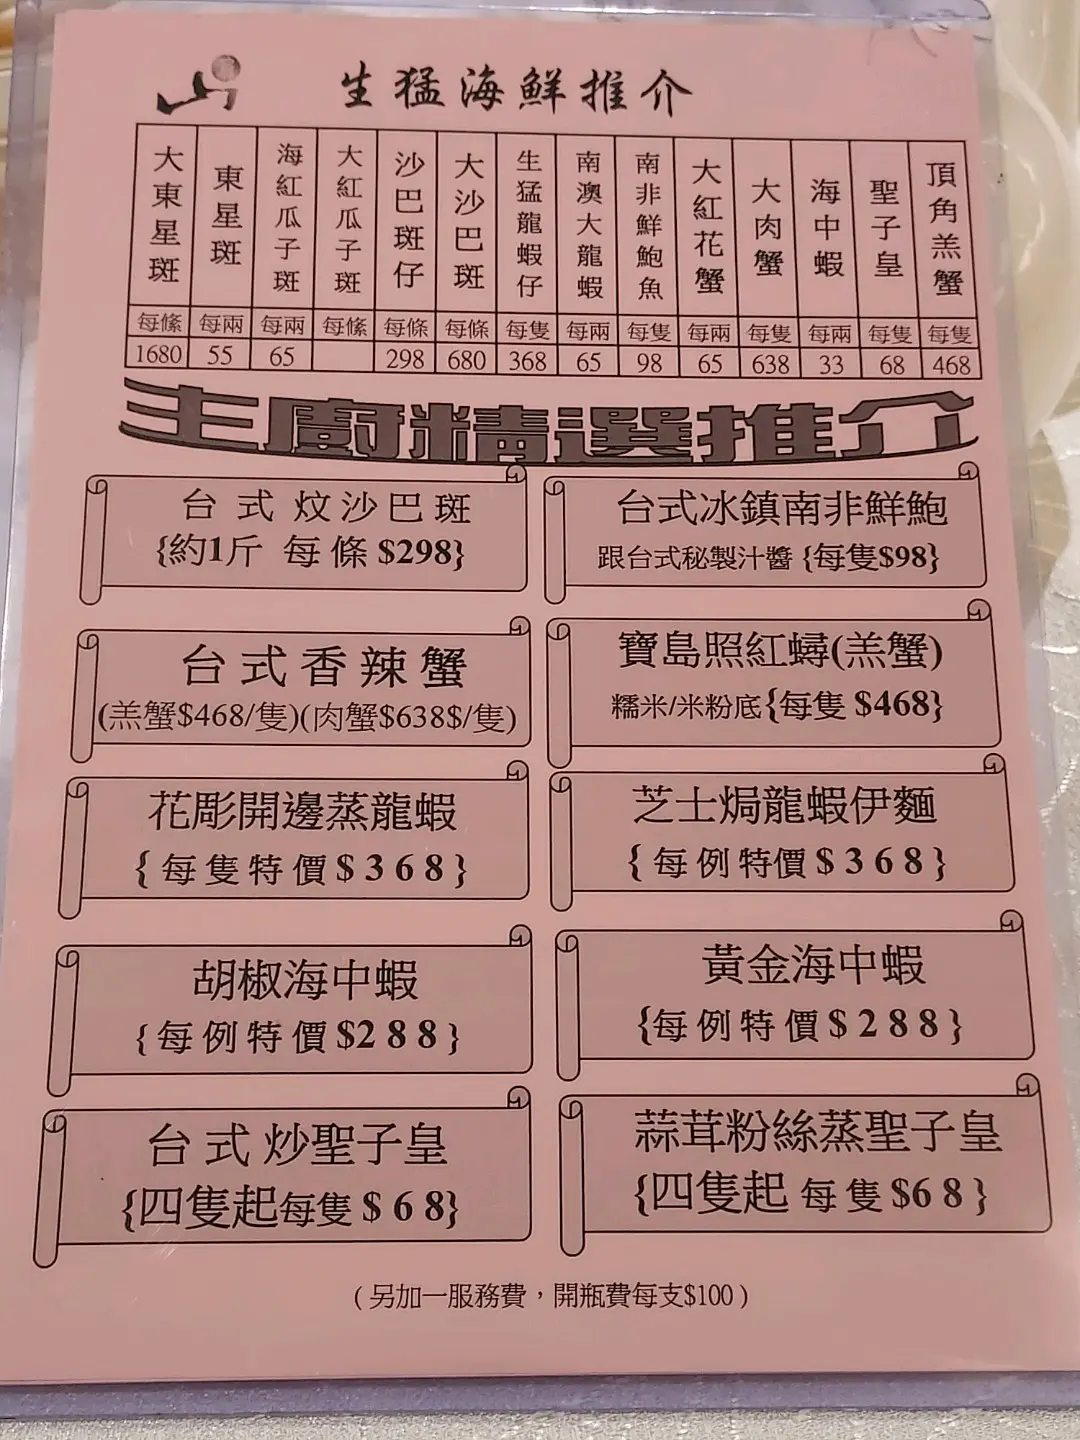 山
生猛海鮮推介
大東星斑 東星斑 海紅瓜子斑 大紅瓜子斑 沙巴斑仔 大沙巴斑 生猛龍蝦仔 南澳大龍蝦 南非鮮鮑魚 大紅花蟹 大肉蟹 海中蝦 聖子皇 頂角羔蟹
每條 每兩 每兩 每條 每條 每條 每隻 每兩 每隻 每兩 每隻 每兩 每隻 每隻
1680 55 65 298 680 368 65 98 65 638 33 68 468
主廚精選推介
台式炆沙巴斑
{約1斤 每條 $298}
台式冰鎮南非鮮鮑
跟台式秘製汁醬 {每隻$98}
台式香辣蟹
(羔蟹$468/隻)(肉蟹$638$/隻)
寶島照紅蟳(羔蟹)
糯米/米粉底{每隻 $468}
花彫開邊蒸龍蝦
{每隻特價$368}
芝士焗龍蝦伊麵
{每例特價$368}
胡椒海中蝦
{每例特價$288}
黃金海中蝦
{每例特價$288}
台式炒聖子皇
{四隻起每隻$68}
蒜茸粉絲蒸聖子皇
{四隻起 每隻$68}
(另加一服務費，開瓶費每支$100)